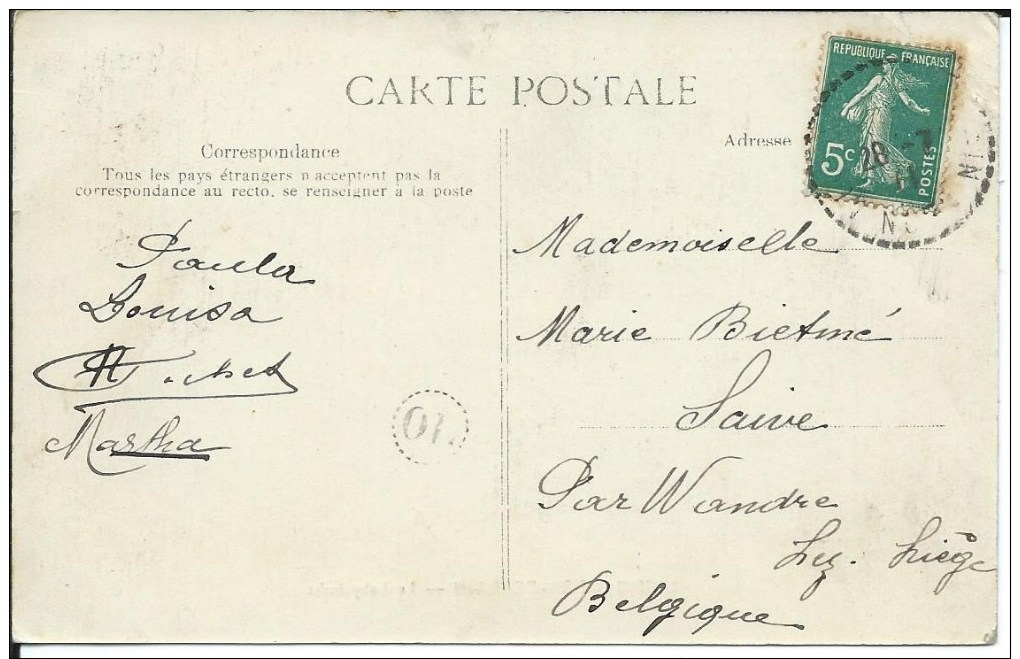 CARTE POSTALE
Correspondance
Tous les pays étrangers n'acceptent pas la
correspondance au recto, se renseigner à la poste
Paula
Louisa
Martha
Adresse
REPUBLIQUE FRANÇAISE
5c
POSTES
28 - 7
11
Mademoiselle
Marie Bietmé
Saive
Par Wandre
Liège
Belgique